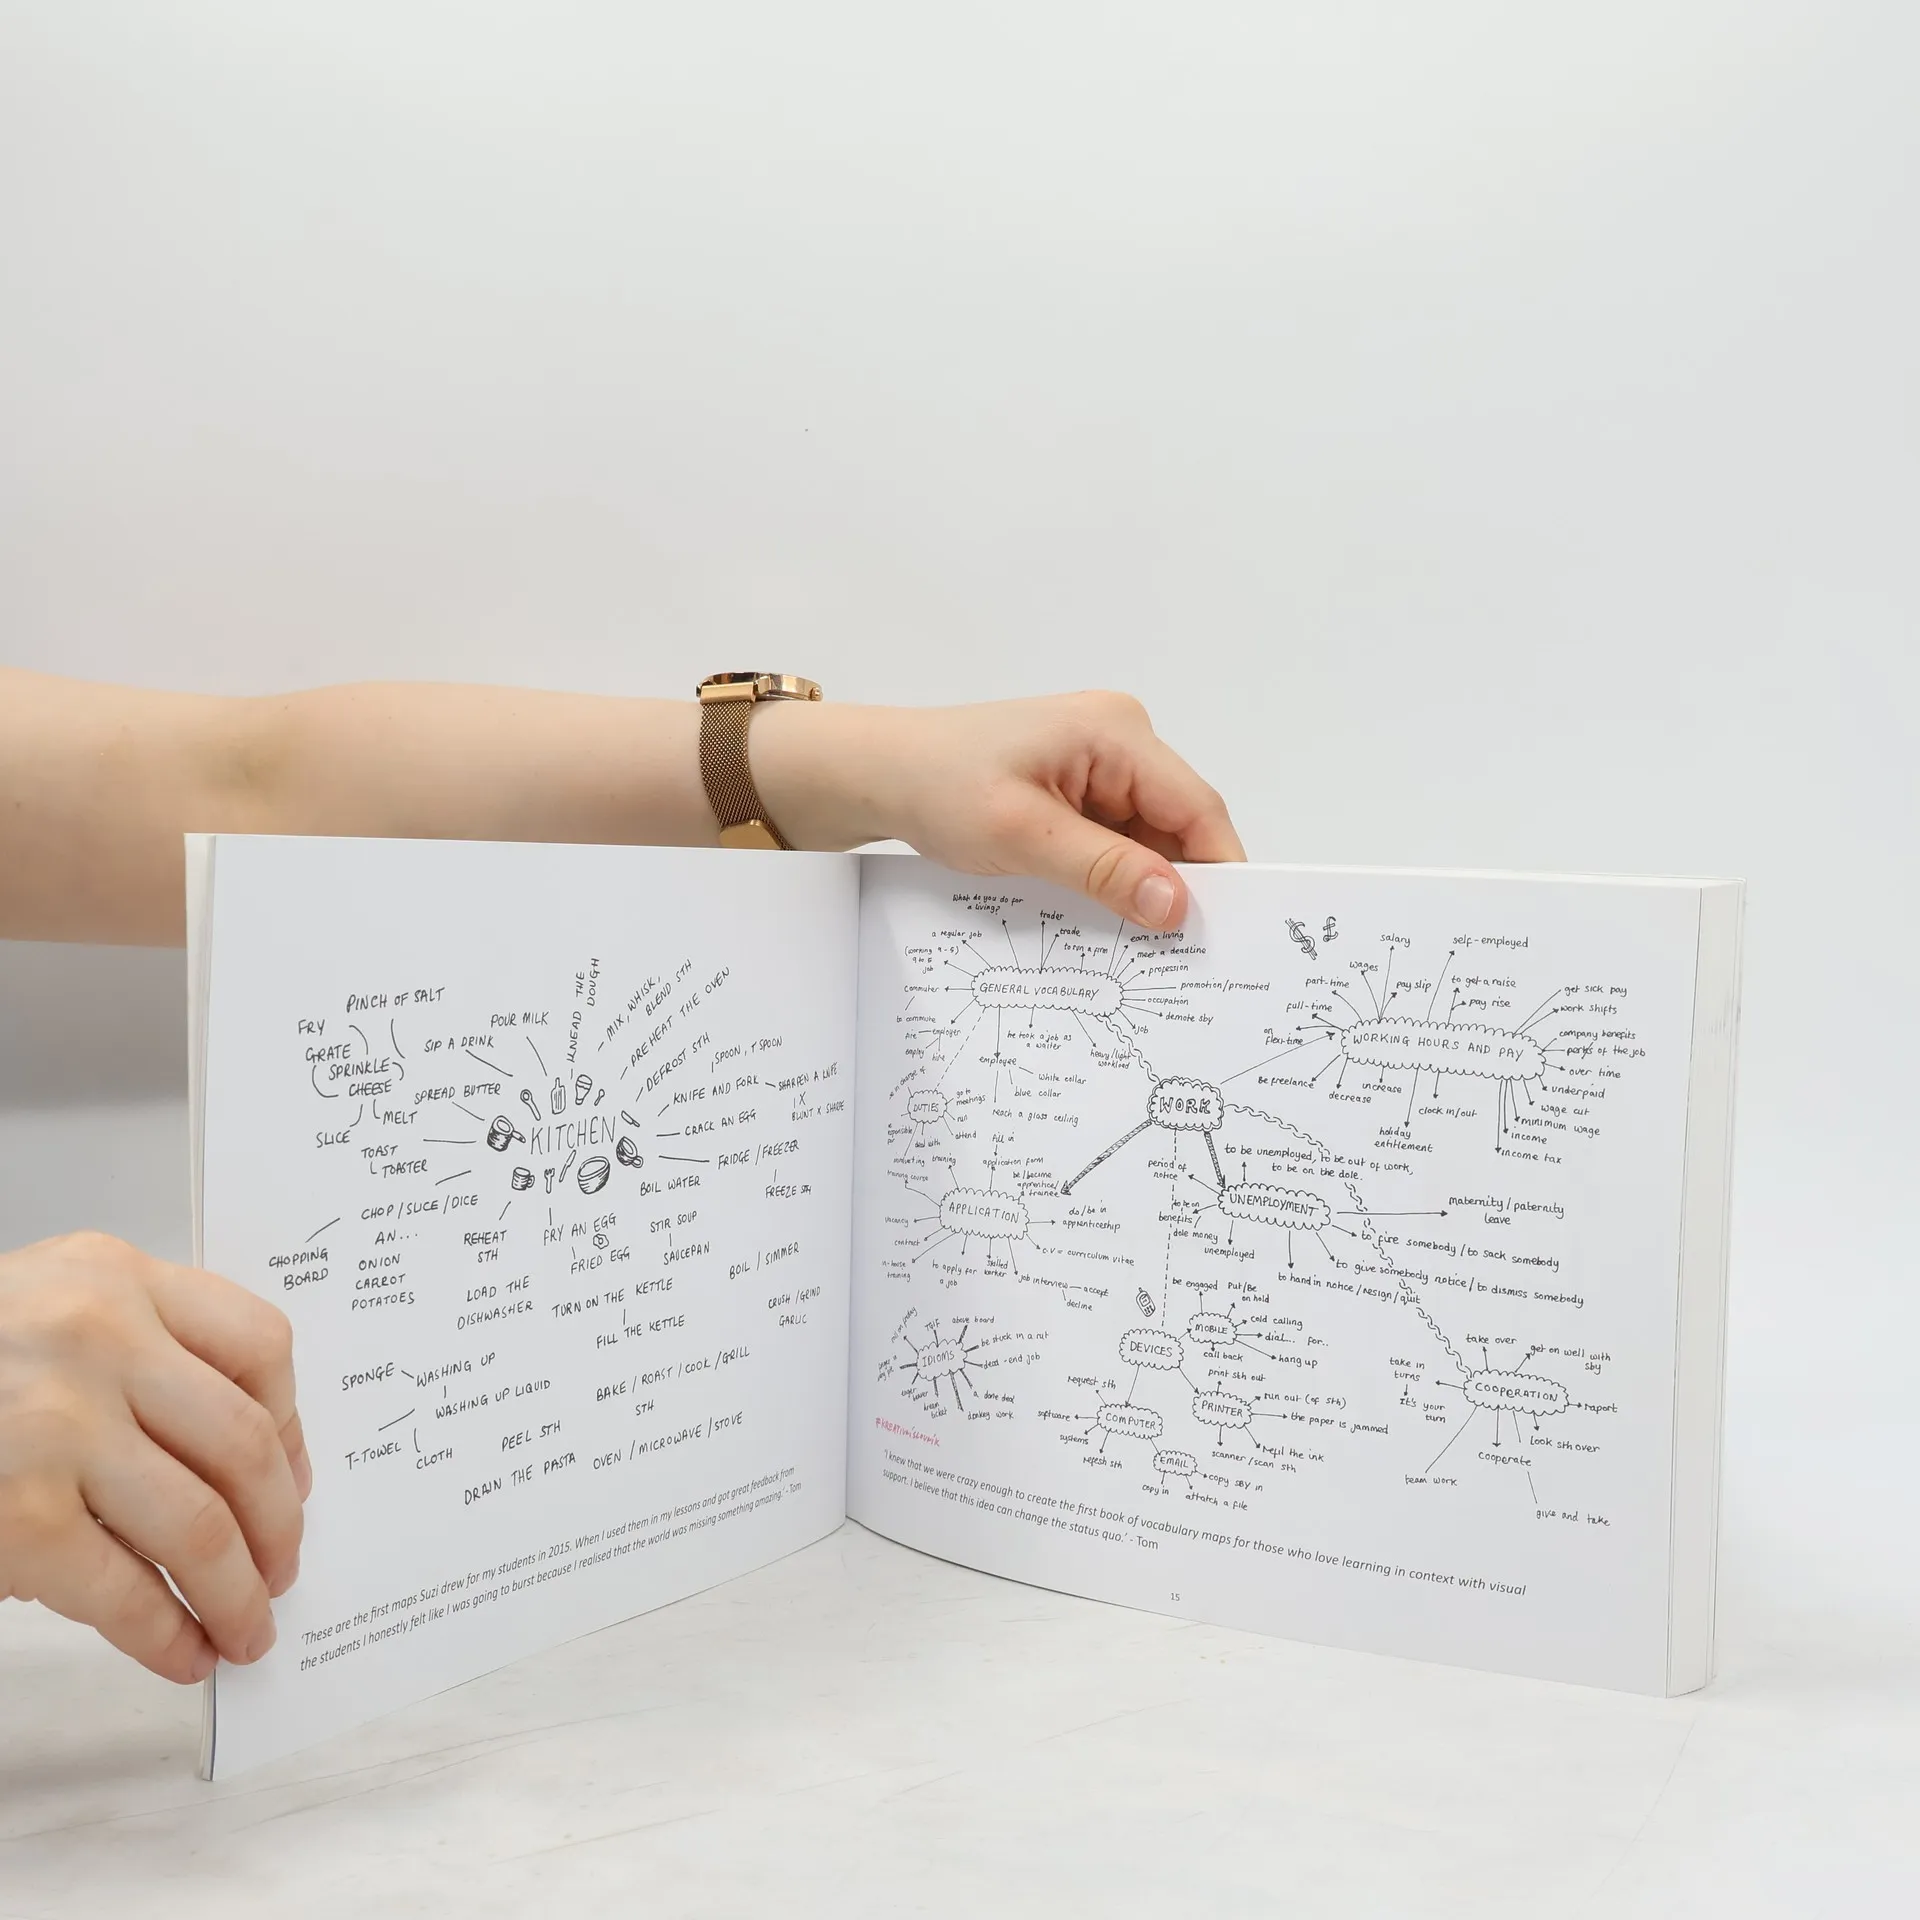 PINCH OF SALT
FRY
GRATE
SPRINKLE
CHEESE
SLICE
MELT
TOAST
TOASTER
SPREAD BUTTER
SIP A DRINK
POUR MILK
KNEAD THE
DOUGH
MIX, WHISK,
BLEND STH
PREHEAT THE OVEN
DEFROST STH
SPOON, T SPOON
KNIFE AND FORK
SHARPEN A KNIFE
X
BLUNT X SHARP
CRACK AN EGG
KITCHEN
FRIDGE / FREEZER
FREEZE STH
BOIL WATER
CHOP / SLICE / DICE
AN...
ONION
CARROT
POTATOES
CHOPPING
BOARD
REHEAT
STH
FRY AN EGG
FRIED EGG
STIR SOUP
SAUCEPAN
BOIL / SIMMER
LOAD THE
DISHWASHER
TURN ON THE KETTLE
FILL THE KETTLE
CRUSH / GRIND
GARLIC
SPONGE
WASHING UP
WASHING UP LIQUID
T-TOWEL
CLOTH
BAKE / ROAST / COOK / GRILL
STH
PEEL STH
DRAIN THE PASTA
OVEN / MICROWAVE / STOVE
'These are the first maps Suzi drew for my students in 2015. When I used them in my lessons and got great feedback from
the students I honestly felt like I was going to burst because I realised that the world was missing something amazing.' - Tom
What do you do for
a living?
trader
trade
to run a firm
earn a living
meet a deadline
profession
promotion/promoted
occupation
demote sby
job
a regular job
(working 9-5)
9 to 5
job
commuter
to commute
GENERAL VOCABULARY
employer
fire
employ
hire
he took a job as
a waiter
heavy/light
workload
employee
white collar
blue collar
reach a glass ceiling
in charge of
DUTIES
go to
meetings
run
attend
deal with
fill in
application form
be/become
apprentice/
a trainee
training
training course
APPLICATION
do/be in
apprenticeship
c.v = curriculum vitae
vacancy
contract
in-house
training
to apply for
a job
skilled
worker
job interview
accept
decline
WORK
$ £
salary
self-employed
wages
part-time
pay slip
to get a raise
pay rise
full-time
on
flexi-time
get sick pay
work shifts
company benefits
perks of the job
over time
underpaid
wage cut
minimum wage
income
income tax
WORKING HOURS AND PAY
Be freelance
increase
decrease
clock in/out
holiday
entitlement
to be unemployed, to be out of work,
to be on the dole.
period of
notice
UNEMPLOYMENT
to be on
benefits/
dole money
unemployed
maternity/paternity
leave
to fire somebody/to sack somebody
to give somebody notice/to dismiss somebody
to hand in notice/resign/quit
be engaged
Put/Be
on hold
MOBILE
cold calling
dial... for..
hang up
call back
DEVICES
print sth out
PRINTER
run out (of sth)
the paper is jammed
refil the ink
scanner/scan sth
request sth
software
COMPUTER
systems
refresh sth
EMAIL
copy SBY in
copy in
attatch a file
take over
get on well with
sby
take in
turns
It's your
turn
COOPERATION
raport
look sth over
cooperate
team work
give and take
TGIF
above board
be stuck in a rut
dead-end job
IDIOMS
a done deal
donkey work
'I knew that we were crazy enough to create the first book of vocabulary maps for those who love learning in context with visual
support. I believe that this idea can change the status quo.' - Tom
15